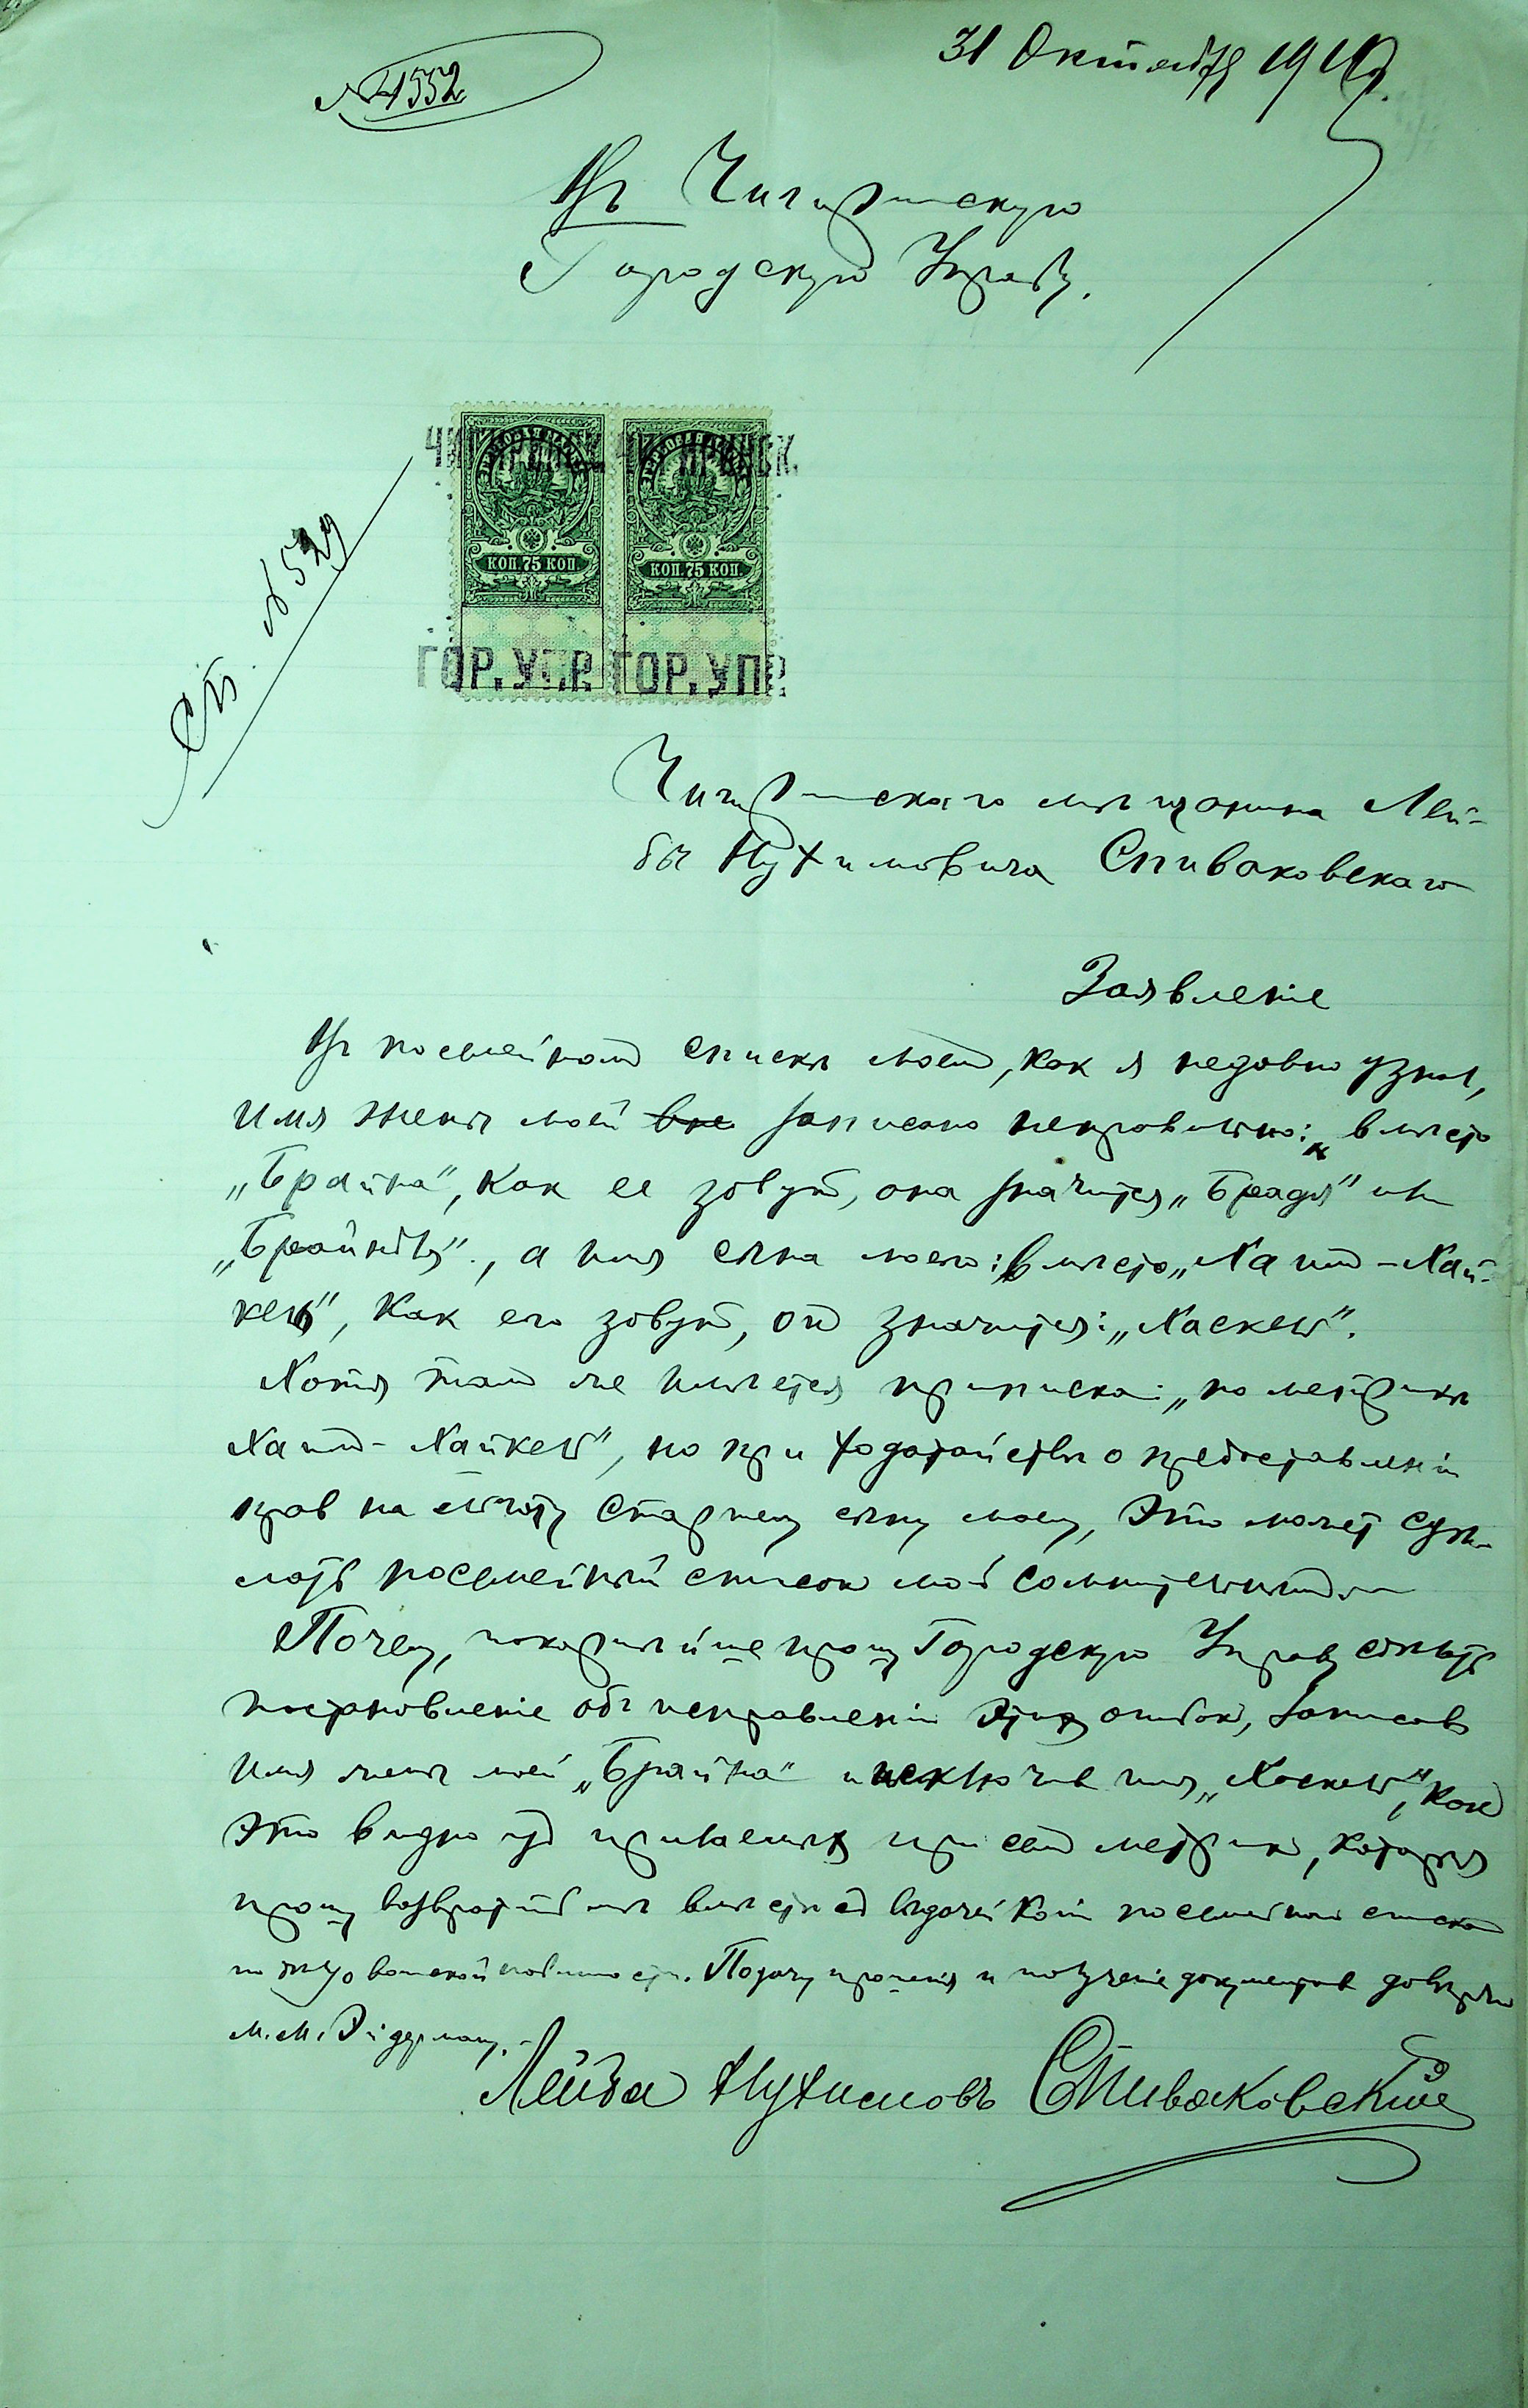 № 4552
31 Октября 191
Въ Чигиринскую
Городскую Управу.
ЧИГИРИНСК. ЧИГИРИНСК.
ГЕРБОВАЯ МАРКА ГЕРБОВАЯ МАРКА
КОП. 75 КОП. КОП. 75 КОП.
ГОР. УПР. ГОР. УПР.
Ст. № 529
Чигиринскаго мѣщанина Лей-
бы Нухимовича Спиваковскаго
Заявленіе
Въ посемейном спискѣ моем, как я недавно узнал,
имя жены моей записано неправильно: вмѣсто
„Брайна", как ее зовут, она значится „Брадя" или
„Брайндя"., а имя сына моего: вмѣсто „Хаим-Хай-
кель", как его зовут, он значится: „Хаскель".
Хотя там же имѣется приписка: „по метрикѣ
Хаим-Хайкель", но при ходатайствѣ о предоставленіи
прав на льготу старшему сыну моему, это может сдѣ-
лать посемейный список мой сомнительным.
Почему, покорнѣйше прошу Городскую Управу сдѣлать
постановленіе объ исправленіи этих ошибок, записав
имя жены моей „Брайна" и исключив имя „Хаскель", как
это видно из прилагаемых при сем метрик, которыя
прошу возвратить мнѣ вмѣстѣ съ выдачей копіи посемейнаго списка
по отбыванію воинской повинности. Подачу прошенія и полученіе документов довѣряю
М. М. Эйдерману.
Лейба Нухимовъ Спиваковскій